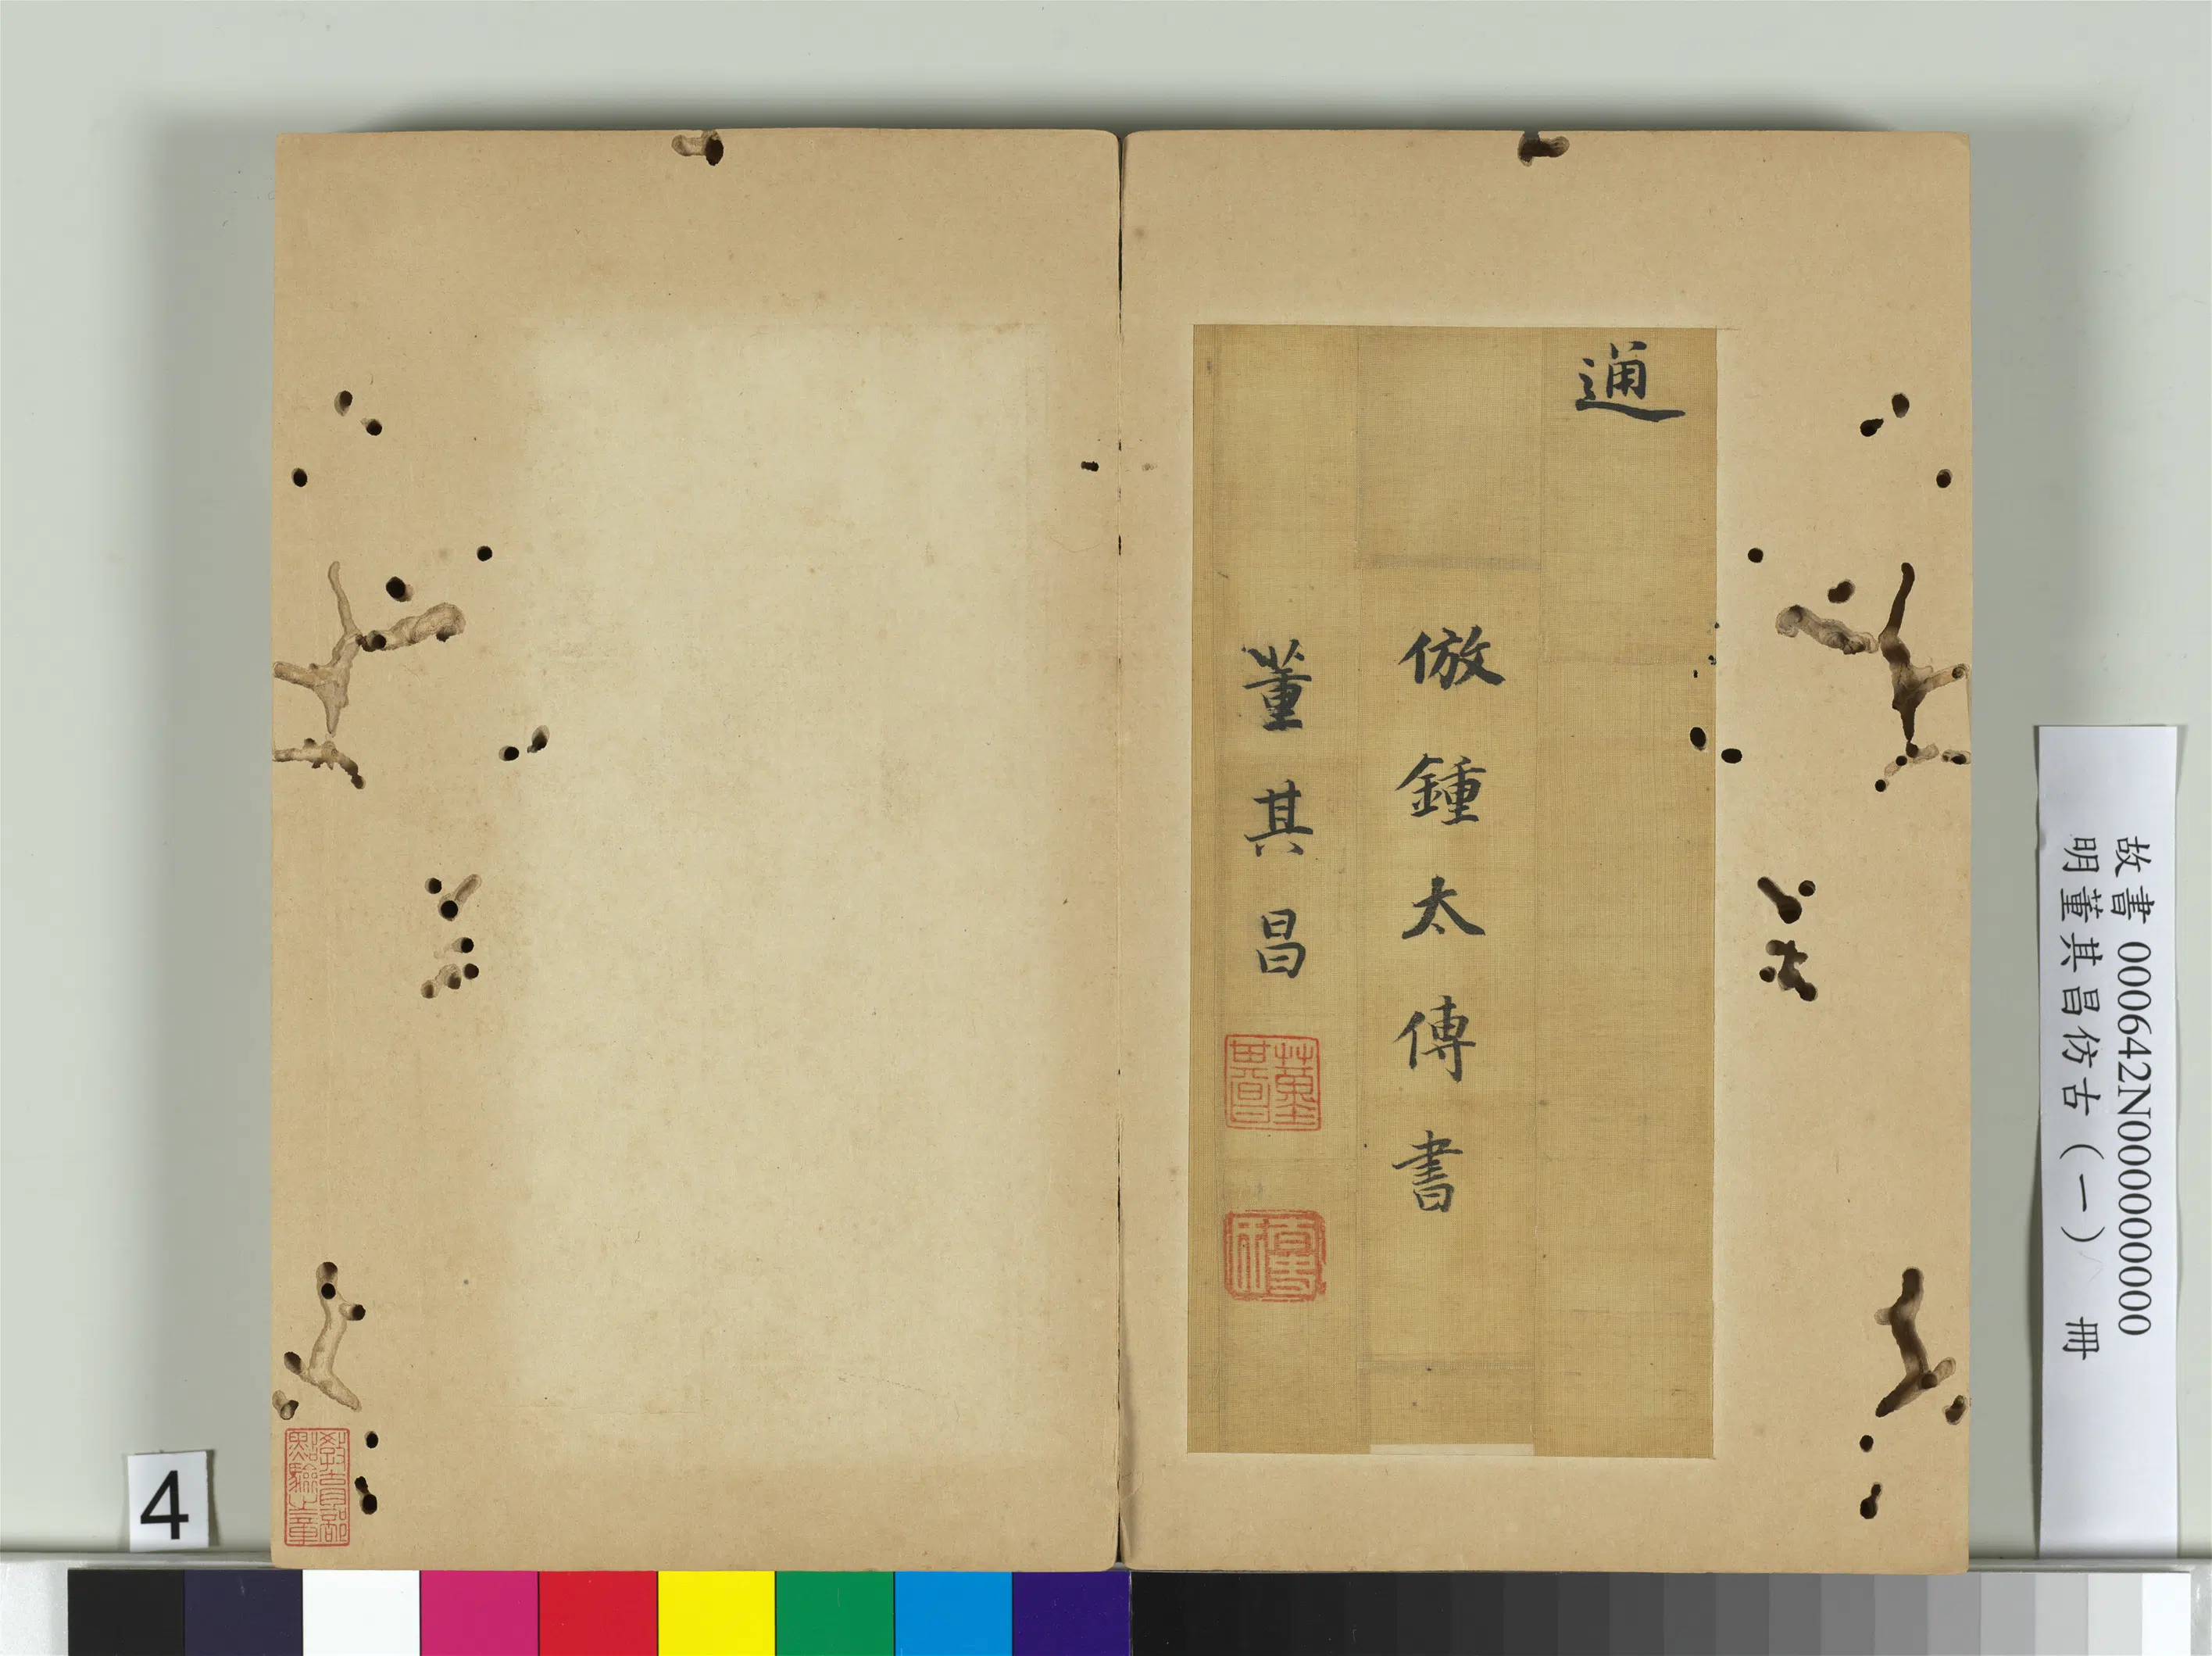 通
倣鍾太傅書
董其昌
董其昌
教育部
點驗之章
故書 000642N000000000
明董其昌仿古（一） 冊
4